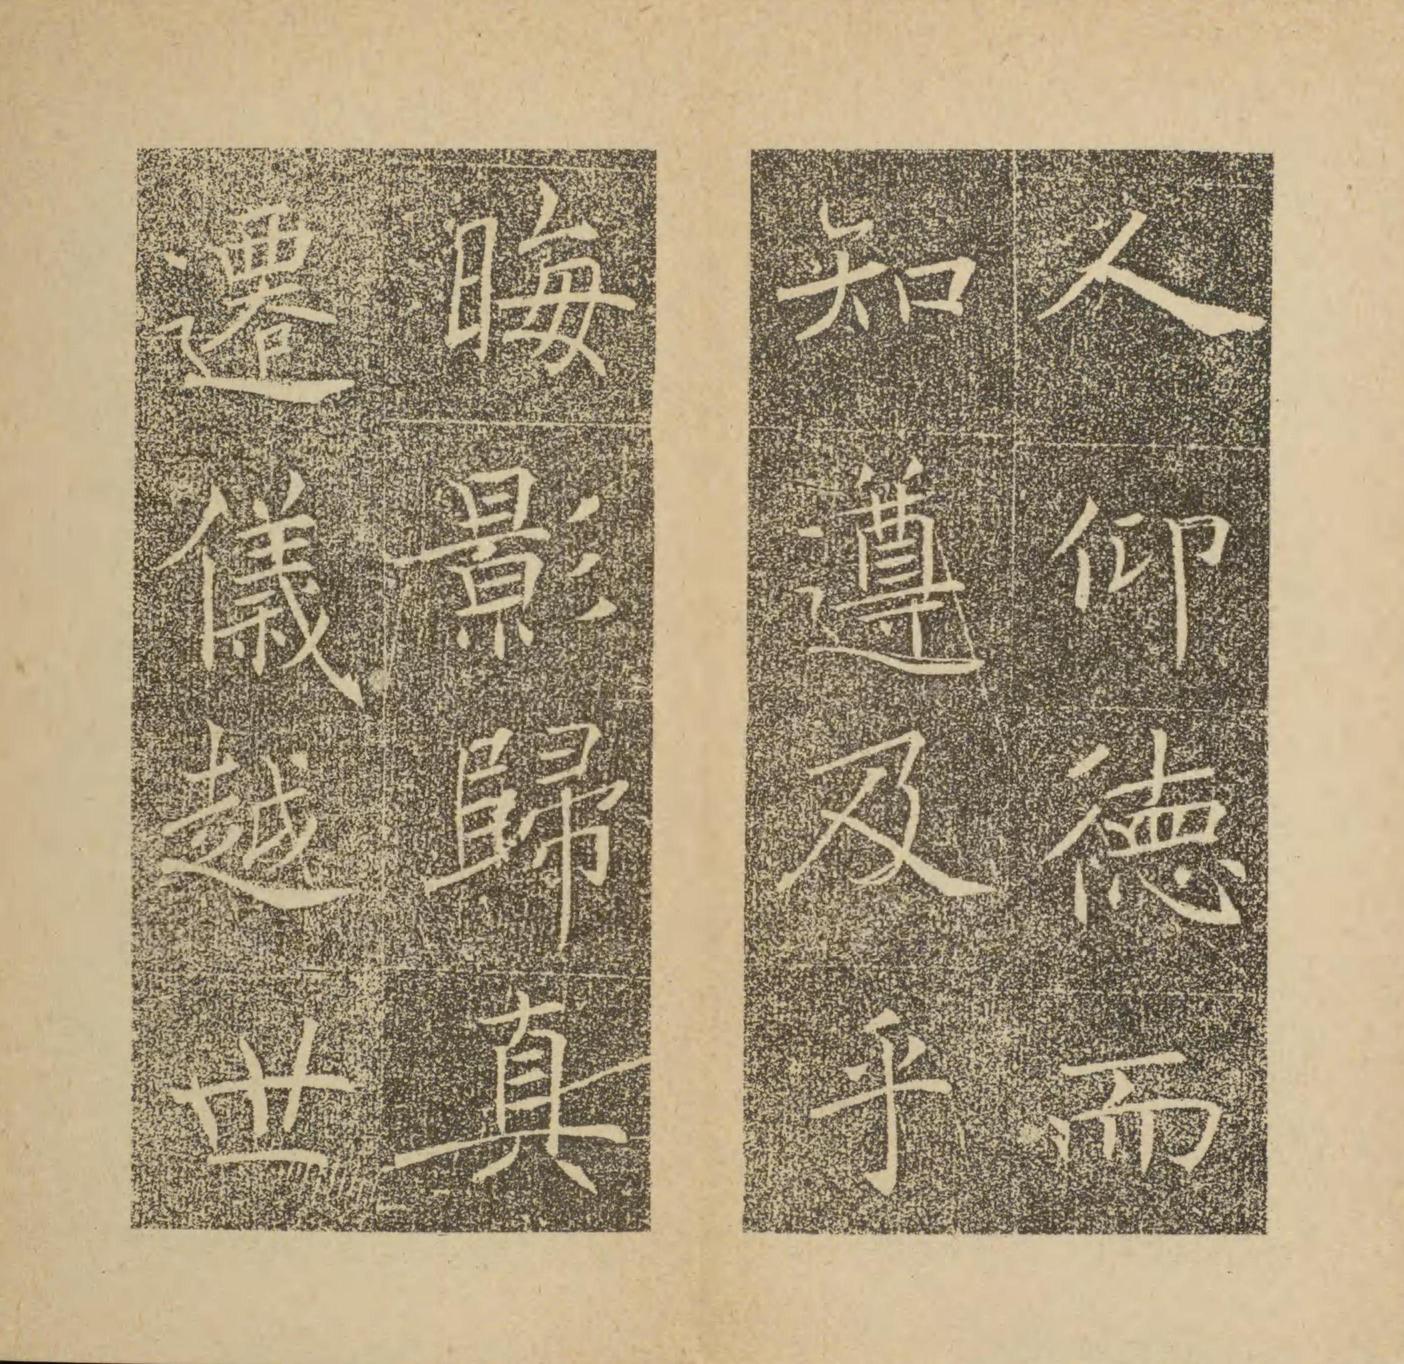 人仰德而
知遵及乎
晦影歸真
遷儀越世